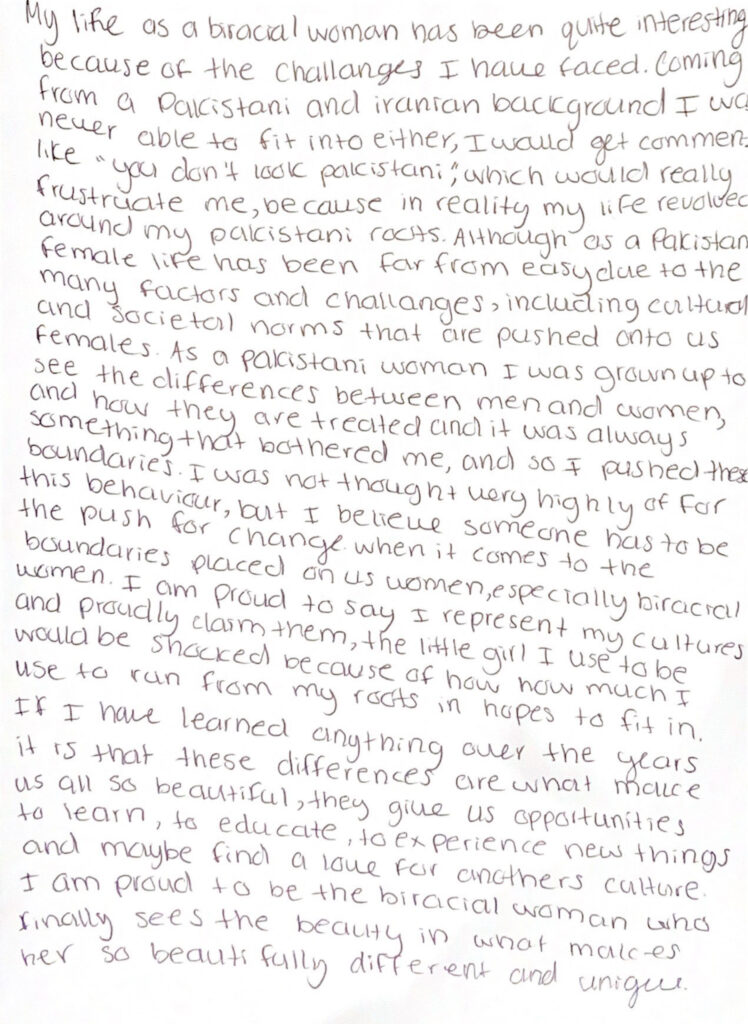 My life as a biracial woman has been quite interesting
because of the challanges I have faced. Coming
from a Pakistani and iranian background I wa
never able to fit into either, I would get commen
like "you don't look pakistani", which would really
frustruate me, because in reality my life revolved
around my pakistani roots. Although as a Pakistan
female life has been far from easy due to the
many factors and challanges, including cultural
and societal norms that are pushed onto us
females. As a pakistani woman I was grown up to
see the differences between men and women,
and how they are treated and it was always
something that bothered me, and so I pushed these
boundaries. I was not thought very highly of for
this behaviour, but I believe someone has to be
the push for change when it comes to the
boundaries placed on us women, especially biracial
women. I am proud to say I represent my cultures
and proudly claim them, the little girl I use to be
would be shocked because of how how much I
use to run from my roots in hopes to fit in.
If I have learned anything over the years
it is that these differences are what make
us all so beautiful, they give us opportunities
to learn, to educate, to experience new things
and maybe find a love for anothers culture.
I am proud to be the biracial woman who
finally sees the beauty in what makes
her so beautifully different and unique.